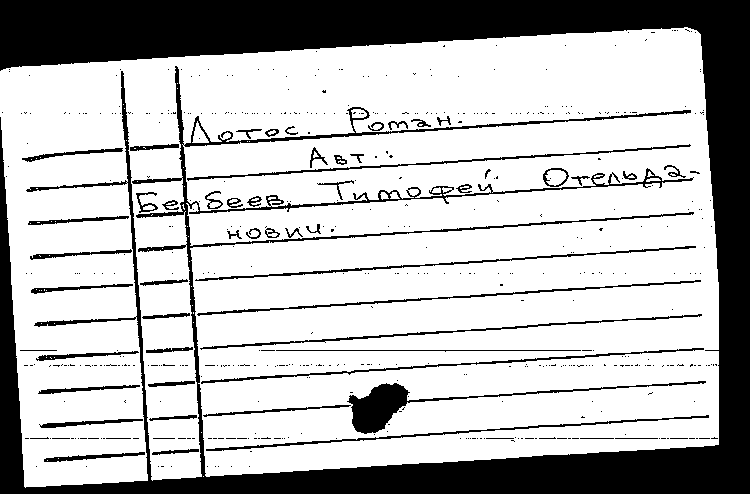 Лотос. Роман.
Авт.:
Бембеев, Тимофей Отельда-
нович.